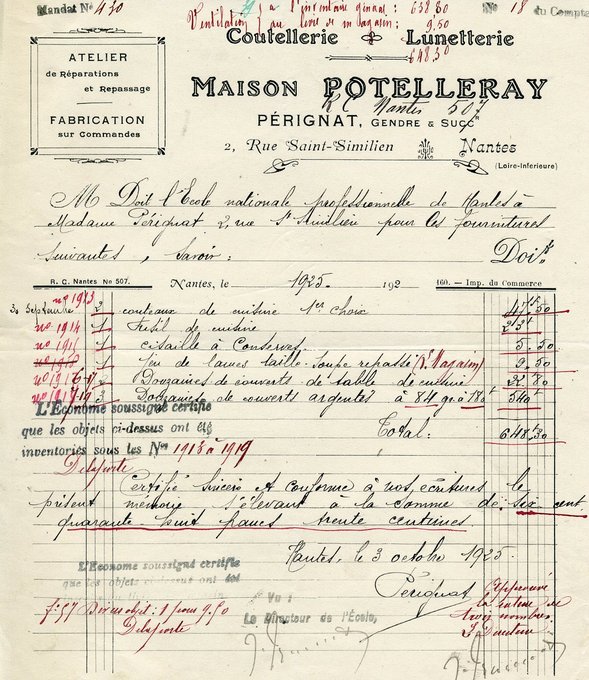 Mandat No 430
Ventilation { à l'inventaire général : 638.80
au livre de m magasin : 9,50
648.30
No 18 du Compta
Coutellerie · Lunetterie
ATELIER
de Réparations
et Repassage
FABRICATION
sur Commandes
MAISON POTELLERAY
R C Nantes 507
PÉRIGNAT, GENDRE & SUCCr
2, Rue Saint-Similien Nantes
(Loire-Inférieure)
M Doit l'Ecole nationale professionnelle de Nantes à
Madame Pérignat 2, rue St Similien pour les fournitures
suivantes, Savoir : Doit
R. C. Nantes No 507. Nantes, le 1925 192 160. — Imp. du Commerce
no 1913
3 Septembre 2 couteaux de cuisine 1er choix 50
no 1914 1 Fusil de cuisine
1 cisaille à Conserves 5.50
1 Jeu de lames taille-soupe repassé (Magasin) 9.50
2 Douzaines de couverts de table de cuisine 80
3 Douzaines de couverts argentés à 84 gr à 180f 540f
L'Econome soussigné certifie
que les objets ci-dessus ont été
inventoriés sous les Nos 1913 à 1919
Total : 648f30
Delaporte
Certifié Sincère et Conforme à nos écritures le
présent mémoire s'élevant à la somme de : Six cent
quarante huit francs trente centimes
Nantes, le 3 octobre 1925
L'Econome soussigné certifie
que les objets ci-dessus ont été
Pérignat
Approuvé
la rature de
trois nombres.
Vu :
Le Directeur de l'École,
Delaporte